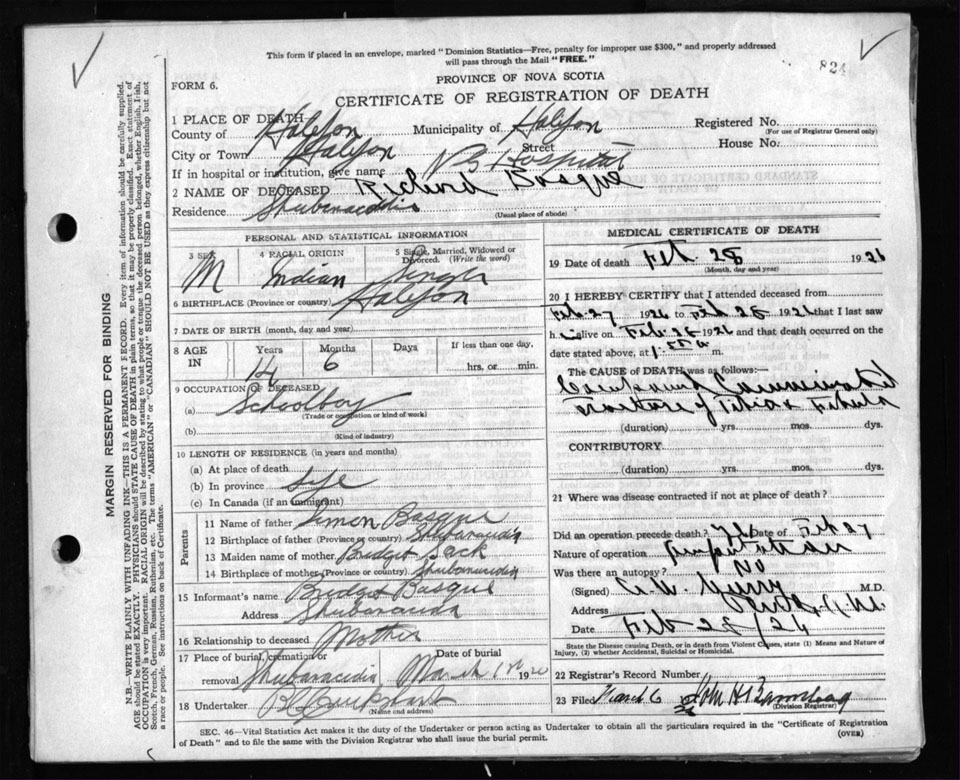 This form if placed in an envelope, marked "Dominion Statistics—Free, penalty for improper use $300," and properly addressed
will pass through the Mail "FREE."
824
PROVINCE OF NOVA SCOTIA
FORM 6.
CERTIFICATE OF REGISTRATION OF DEATH
1 PLACE OF DEATH
County of Halifax Municipality of Halifax Registered No.
(For use of Registrar General only)
City or Town Halifax Street House No.
If in hospital or institution, give name Hospital
2 NAME OF DECEASED Richard Basque
Residence Shubenacadie
(Usual place of abode)
PERSONAL AND STATISTICAL INFORMATION
3 SEX 4 RACIAL ORIGIN 5 Single, Married, Widowed or Divorced. (Write the word)
M Indian Single
6 BIRTHPLACE (Province or country) Halifax
7 DATE OF BIRTH (month, day and year)
8 AGE IN Years Months Days If less than one day,
14 6 hrs. or min.
9 OCCUPATION OF DECEASED
(a) Schoolboy
(Trade or occupation or kind of work)
(b)
(Kind of industry)
10 LENGTH OF RESIDENCE (in years and months)
(a) At place of death
(b) In province life
(c) In Canada (if an immigrant)
Parents
11 Name of father Simon Basque
12 Birthplace of father (Province or country)
13 Maiden name of mother Bridget Sack
14 Birthplace of mother (Province or country)
15 Informant's name Bridget Basque
Address
16 Relationship to deceased Mother
17 Place of burial, cremation or removal Date of burial
March 1st 19
18 Undertaker
(Name and address)
MEDICAL CERTIFICATE OF DEATH
19 Date of death Feb 28 1926
(Month, day and year)
20 I HEREBY CERTIFY that I attended deceased from
Feb 27 1926 to Feb 28 1926 that I last saw
h im alive on Feb 28 1926 and that death occurred on the
date stated above, at m.
The CAUSE OF DEATH was as follows:
Compound Comminuted
Fracture of Tibia & Fibula
(duration) yrs. mos. dys.
CONTRIBUTORY
(duration) yrs. mos. dys.
21 Where was disease contracted if not at place of death?
Did an operation precede death? Yes Date of Feb 27
Nature of operation Amputation
Was there an autopsy? No
(Signed) M.D.
Address
Date Feb 28/26
State the Disease causing Death, or in death from Violent Causes, state (1) Means and Nature of
Injury, (2) whether Accidental, Suicidal or Homicidal.
22 Registrar's Record Number
23 Filed March 6 John H
(Division Registrar)
SEC. 46—Vital Statistics Act makes it the duty of the Undertaker or person acting as Undertaker to obtain all the particulars required in the "Certificate of Registration
of Death" and to file the same with the Division Registrar who shall issue the burial permit.
(OVER)
MARGIN RESERVED FOR BINDING
N.B.—WRITE PLAINLY WITH UNFADING INK—THIS IS A PERMANENT RECORD. Every item of information should be carefully supplied.
AGE should be stated EXACTLY. PHYSICIANS should STATE CAUSE OF DEATH in plain terms, so that it may be properly classified. Exact statement of
OCCUPATION is very important. RACIAL ORIGIN will be described by stating to what people or tongue the deceased person belonged, whether English, Irish,
Scotch, French, German, Russian, Ruthenian, etc. The terms "AMERICAN" or "CANADIAN" SHOULD NOT BE USED as they express citizenship but not
a race or people. See instructions on back of Certificate.